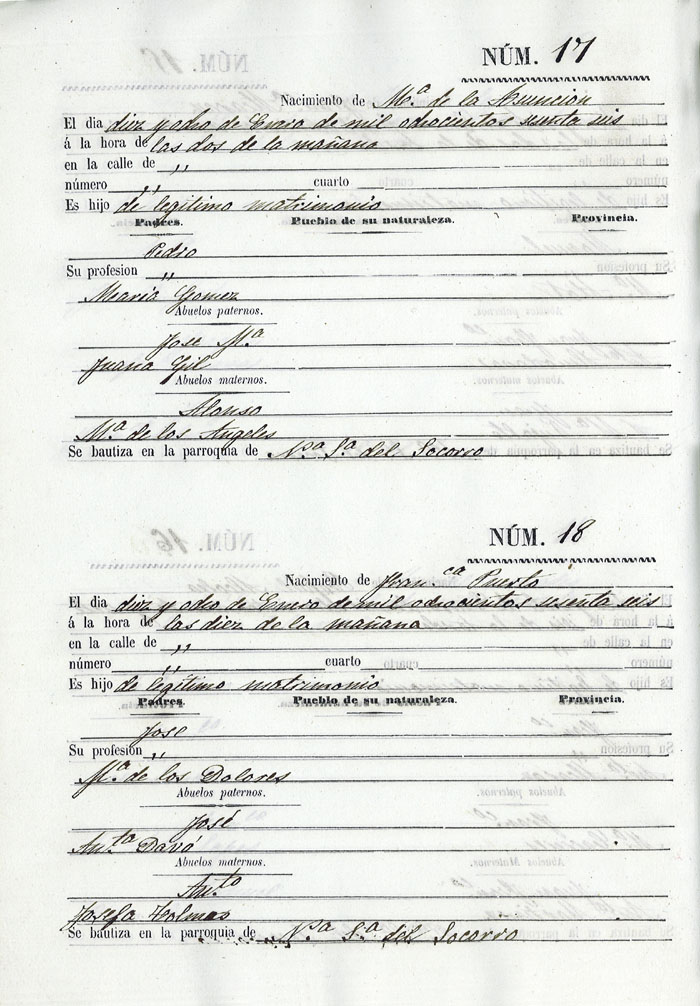 NÚM. 17
Nacimiento de Mª de la Asuncion
El dia diez y ocho de Enero de mil ochocientos sesenta seis
á la hora de las dos de la mañana
en la calle de ,,
número ,, cuarto
Es hijo de legitimo matrimonio
Padres. Pueblo de su naturaleza. Provincia.
Pedro
Su profesion ,,
Maria Gomez
Abuelos paternos.
Jose Mª
Juana Gil
Abuelos maternos.
Alonso
Mª de los Angeles
Se bautiza en la parroquia de Nª Sª del Socorro
NÚM. 18
Nacimiento de Franca Puerto
El dia diez y ocho de Enero de mil ochocientos sesenta seis
á la hora de las diez de la mañana
en la calle de ,,
número ,, cuarto
Es hijo de legítimo matrimonio
Padres. Pueblo de su naturaleza. Provincia.
Jose
Su profesion ,,
Mª de los Dolores
Abuelos paternos.
José
Antª Davó
Abuelos maternos.
Antº
Josefa
Se bautiza en la parroquia de Nª Sª del Socorro